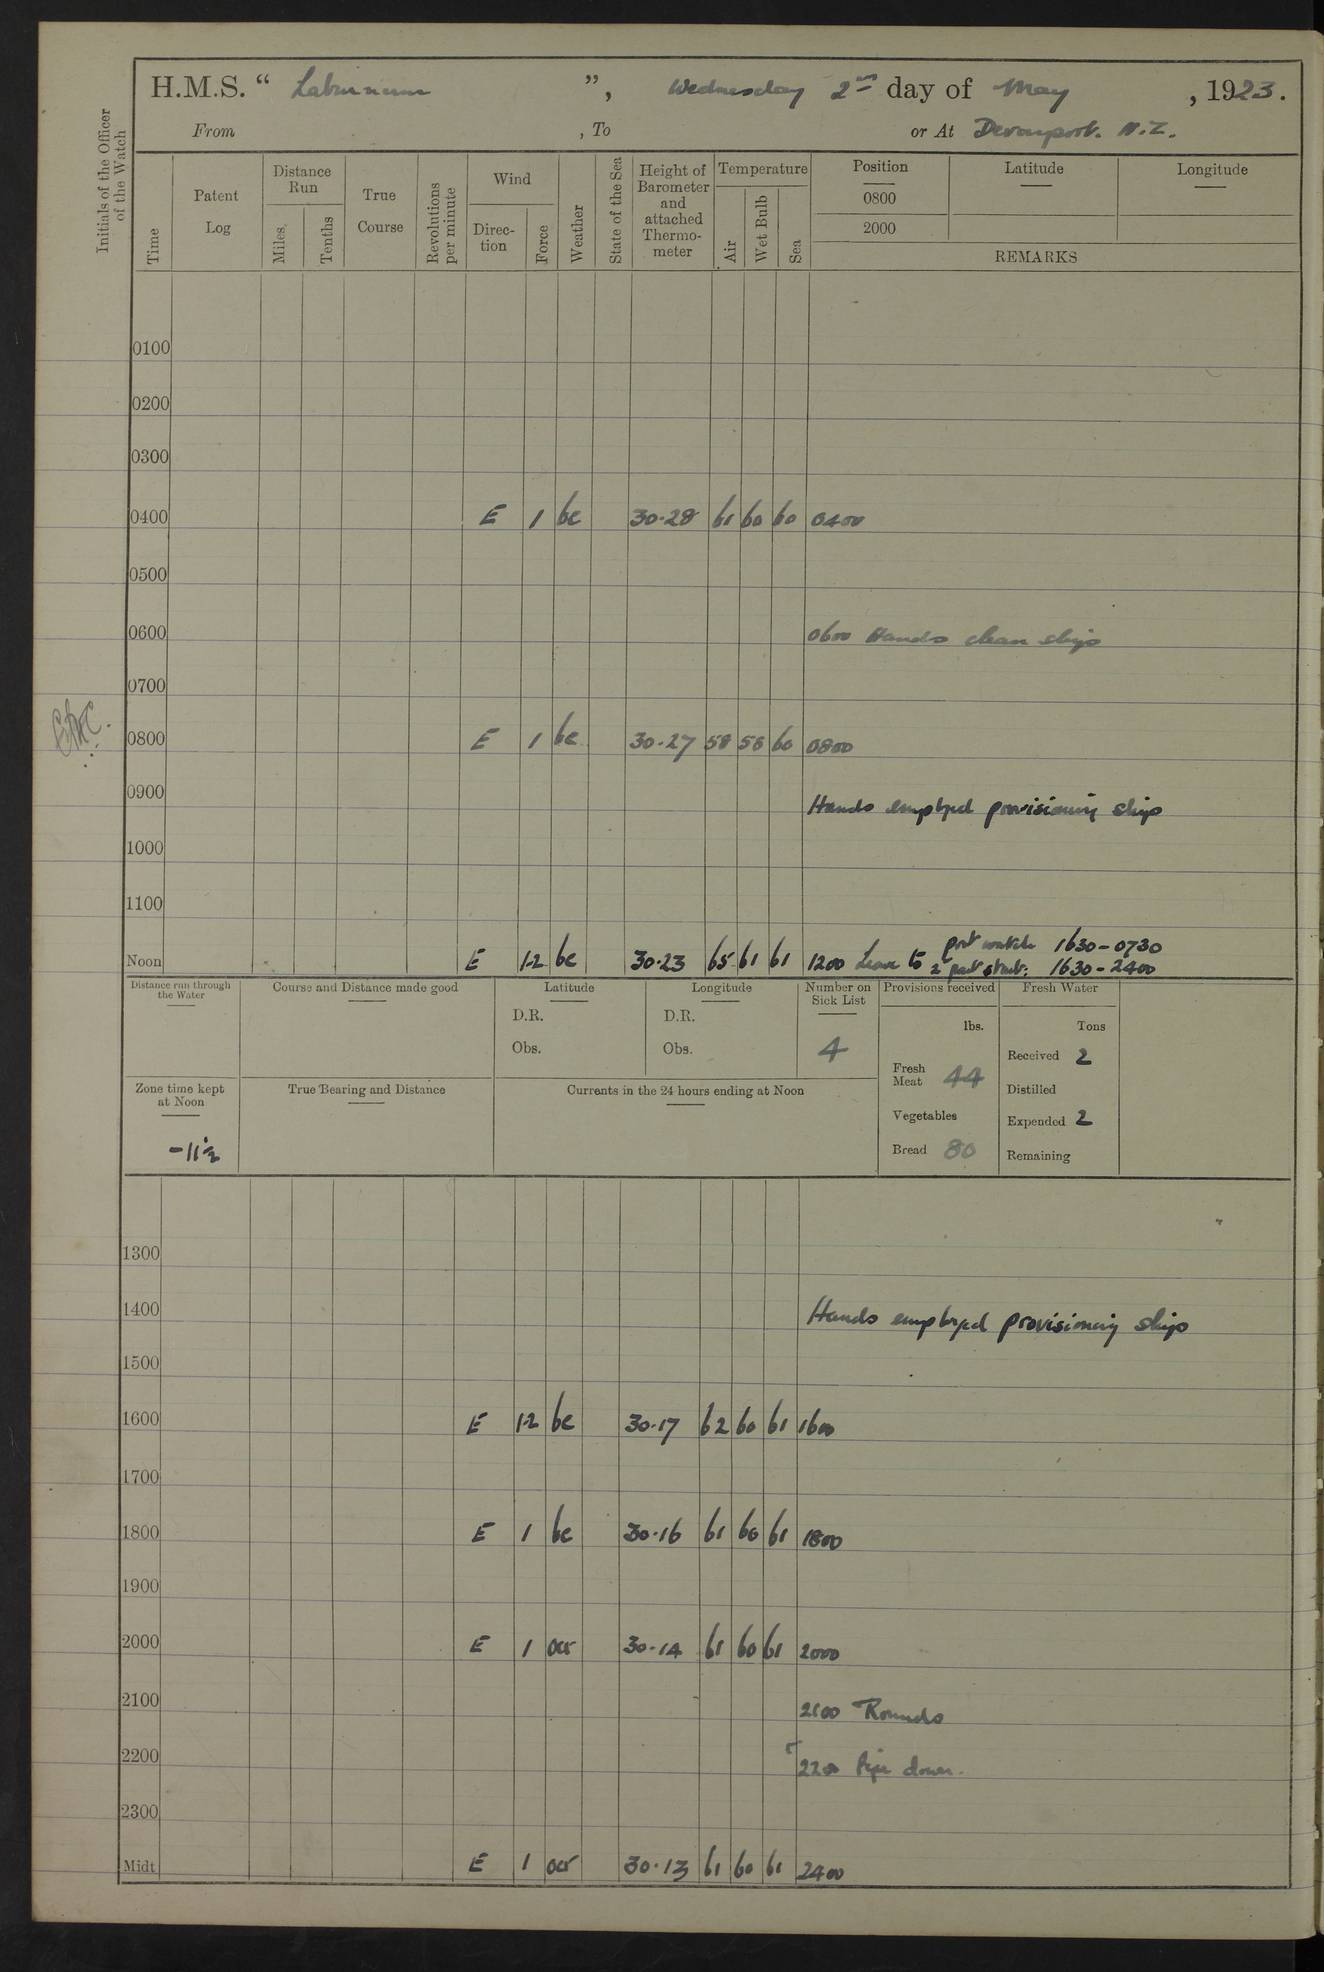 H.M.S. “ Laburnum ”, Wednesday 2nd day of May , 1923.
From , To or At Devonport. N.Z.
Initials of the Officer of the Watch
Time
Patent Log
Distance Run
Miles.
Tenths
True Course
Revolutions per minute
Wind
Direction
Force
Weather
State of the Sea
Height of Barometer and attached Thermometer
Temperature
Air
Wet Bulb
Sea
Position
0800
2000
Latitude
Longitude
REMARKS
0100
0200
0300
0400 E 1 bc 30.28 61 60 60 0400
0500
0600 0600 Hands clean ship
0700
0800 E 1 bc 30.27 58 58 60 0800
0900 Hands employed provisioning ship
1000
1100
port watch 1630-0730
Noon E 1-2 bc 30.23 65 61 61 1200 Leave to 2nd part starb: 1630-2400
Distance run through the Water
Course and Distance made good
Latitude
D.R.
Obs.
Longitude
D.R.
Obs.
Number on Sick List
4
Provisions received
lbs.
Fresh Meat 44
Vegetables
Bread 80
Fresh Water
Tons
Received 2
Distilled
Expended 2
Remaining
Zone time kept at Noon
-11½
True Bearing and Distance
Currents in the 24 hours ending at Noon
1300
1400 Hands employed provisioning ship
1500
1600 E 1-2 bc 30.17 62 60 61 1600
1700
1800 E 1 bc 30.16 61 60 61 1800
1900
2000 E 1 ocr 30.14 61 60 61 2000
2100 2100 Rounds
2200 2200 Pipe down.
2300
Midt E 1 ocr 30.13 61 60 61 2400